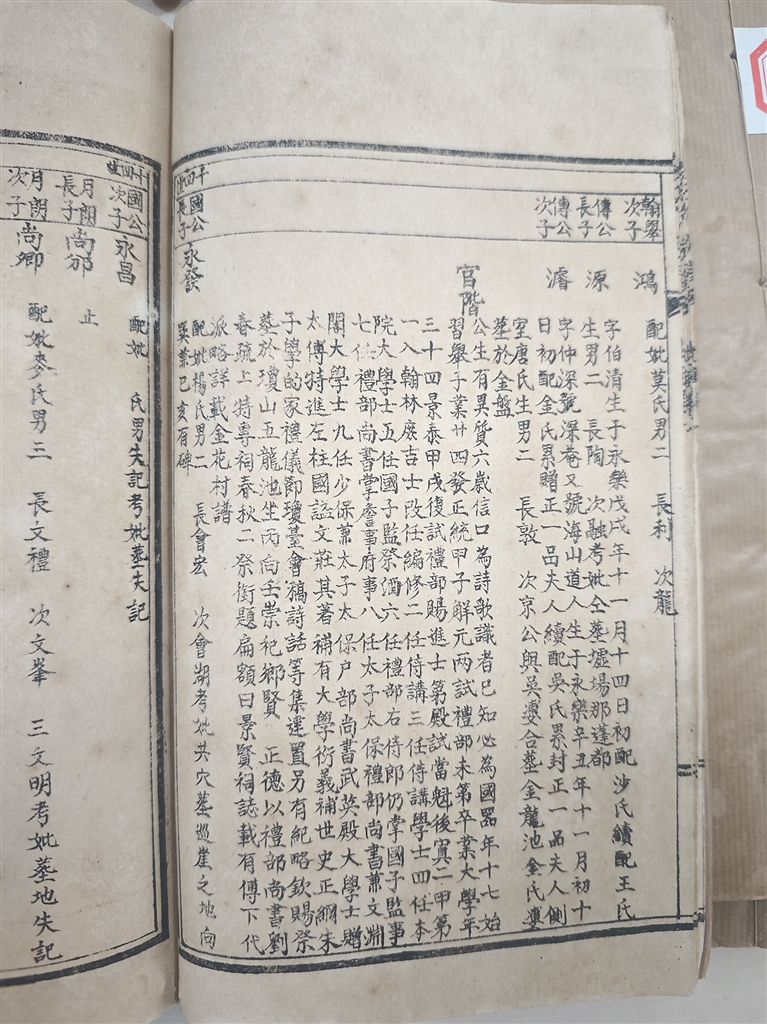 翰舉次子
鴻
配妣莫氏男二 長利 次龍
傳公長子
源
字伯清生于永樂戊戌年十一月十四日初配沙氏續配王氏
生男二 長陶 次融考妣仝墓墟場那蓬都
傳公次子
濬
字仲深號深菴又號海山道人生于永樂辛丑年十一月初十
日初配金氏累贈正一品夫人續配吳氏累封正一品夫人側
室唐氏生男二 長敦 次京公與吳婆合墓金龍池金氏婆
墓於金盤
官階
公生有異質六歲信口為詩歌識者已知必為國器年十七始
習舉子業廿四發正統甲子解元兩試禮部未第卒業大學年
三十四景泰甲戌復試禮部賜進士第殿試當魁後寘二甲第
一入翰林庶吉士改任編修二任侍講三任侍講學士四任本
院大學士五任國子監祭酒六任禮部右侍郎仍掌國子監事
七任禮部尚書掌詹事府事八任太子太保禮部尚書兼文淵
閣大學士九任少保兼太子太保户部尚書武英殿大學士贈
太傅特進左柱國謚文莊其著補有大學衍義補世史正綱朱
子學的家禮儀節瓊臺會稿詩話等集運置另有紀略欽賜祭
墓於瓊山五龍池坐丙向壬崇祀鄉賢 正德以禮部尚書劉
春疏上特專祠春秋二祭銜題扁額曰景賢祠誌載有傳下代
派略詳載金花村譜
十四世
國公長子
永發
配妣楊氏男二 長會宏 次會湖考妣共穴墓巡崖之地向
巽兼巳亥有碑
十四世
國公次子
永昌
配妣 氏男失記考妣墓失記
月朗長子
尚邠
止
月朗次子
尚卿
配妣麥氏男三 長文禮 次文峯 三文明考妣墓地失記